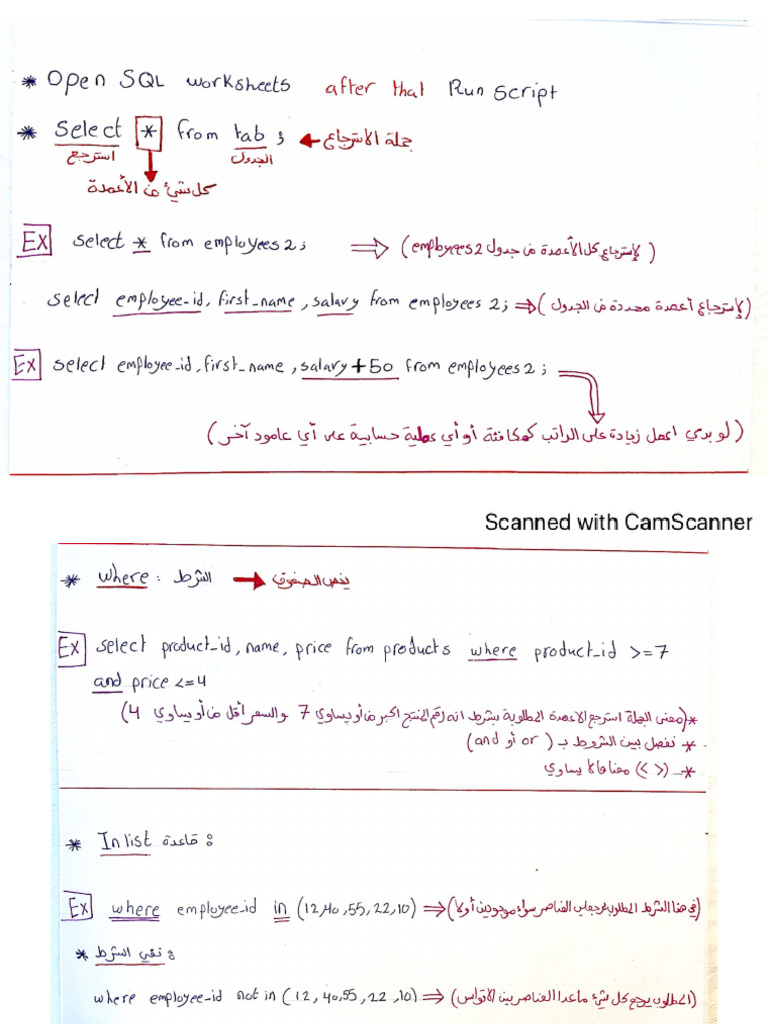 * Open SQL worksheets after that Run Script
* Select * from tab ; ← جملة الاسترجاع
استرجع الجدول
كل شيء من الأعمدة
EX select * from employees2; ⇒ (لإسترجاع كل الأعمدة من جدول employees2)
select employee_id, first_name, salary from employees 2; ⇒ (لإسترجاع أعمدة محددة من الجدول)
EX select employee_id, first_name, salary+50 from employees2;
(لو بدي اعمل زيادة على الراتب كمكافئة أو أي عملية حسابية على أي عامود آخر)
Scanned with CamScanner
* where : الشرط → يخص الصفوف
EX select product_id, name, price from products where product_id >=7
and price <=4
*(معنى الجملة استرجع الاعمدة المطلوبة بشرط انه رقم المنتج اكبر من أو يساوي 7 والسعر أقل من أو يساوي 4)
* نفصل بين الشروط بـ (or أو and)
* (< >) معناها لا يساوي
* In list قاعدة :
EX where employee_id in (12,40,55,22,10) ⇒ (في هذا الشرط المطلوب يرجع لي العناصر سواء موجودين أو لا)
* نفي الشرط :
where employee_id not in (12, 40,55, 22 ,10) ⇒ (المطلوب يرجع كل شيء ما عدا العناصر بين الأقواس)